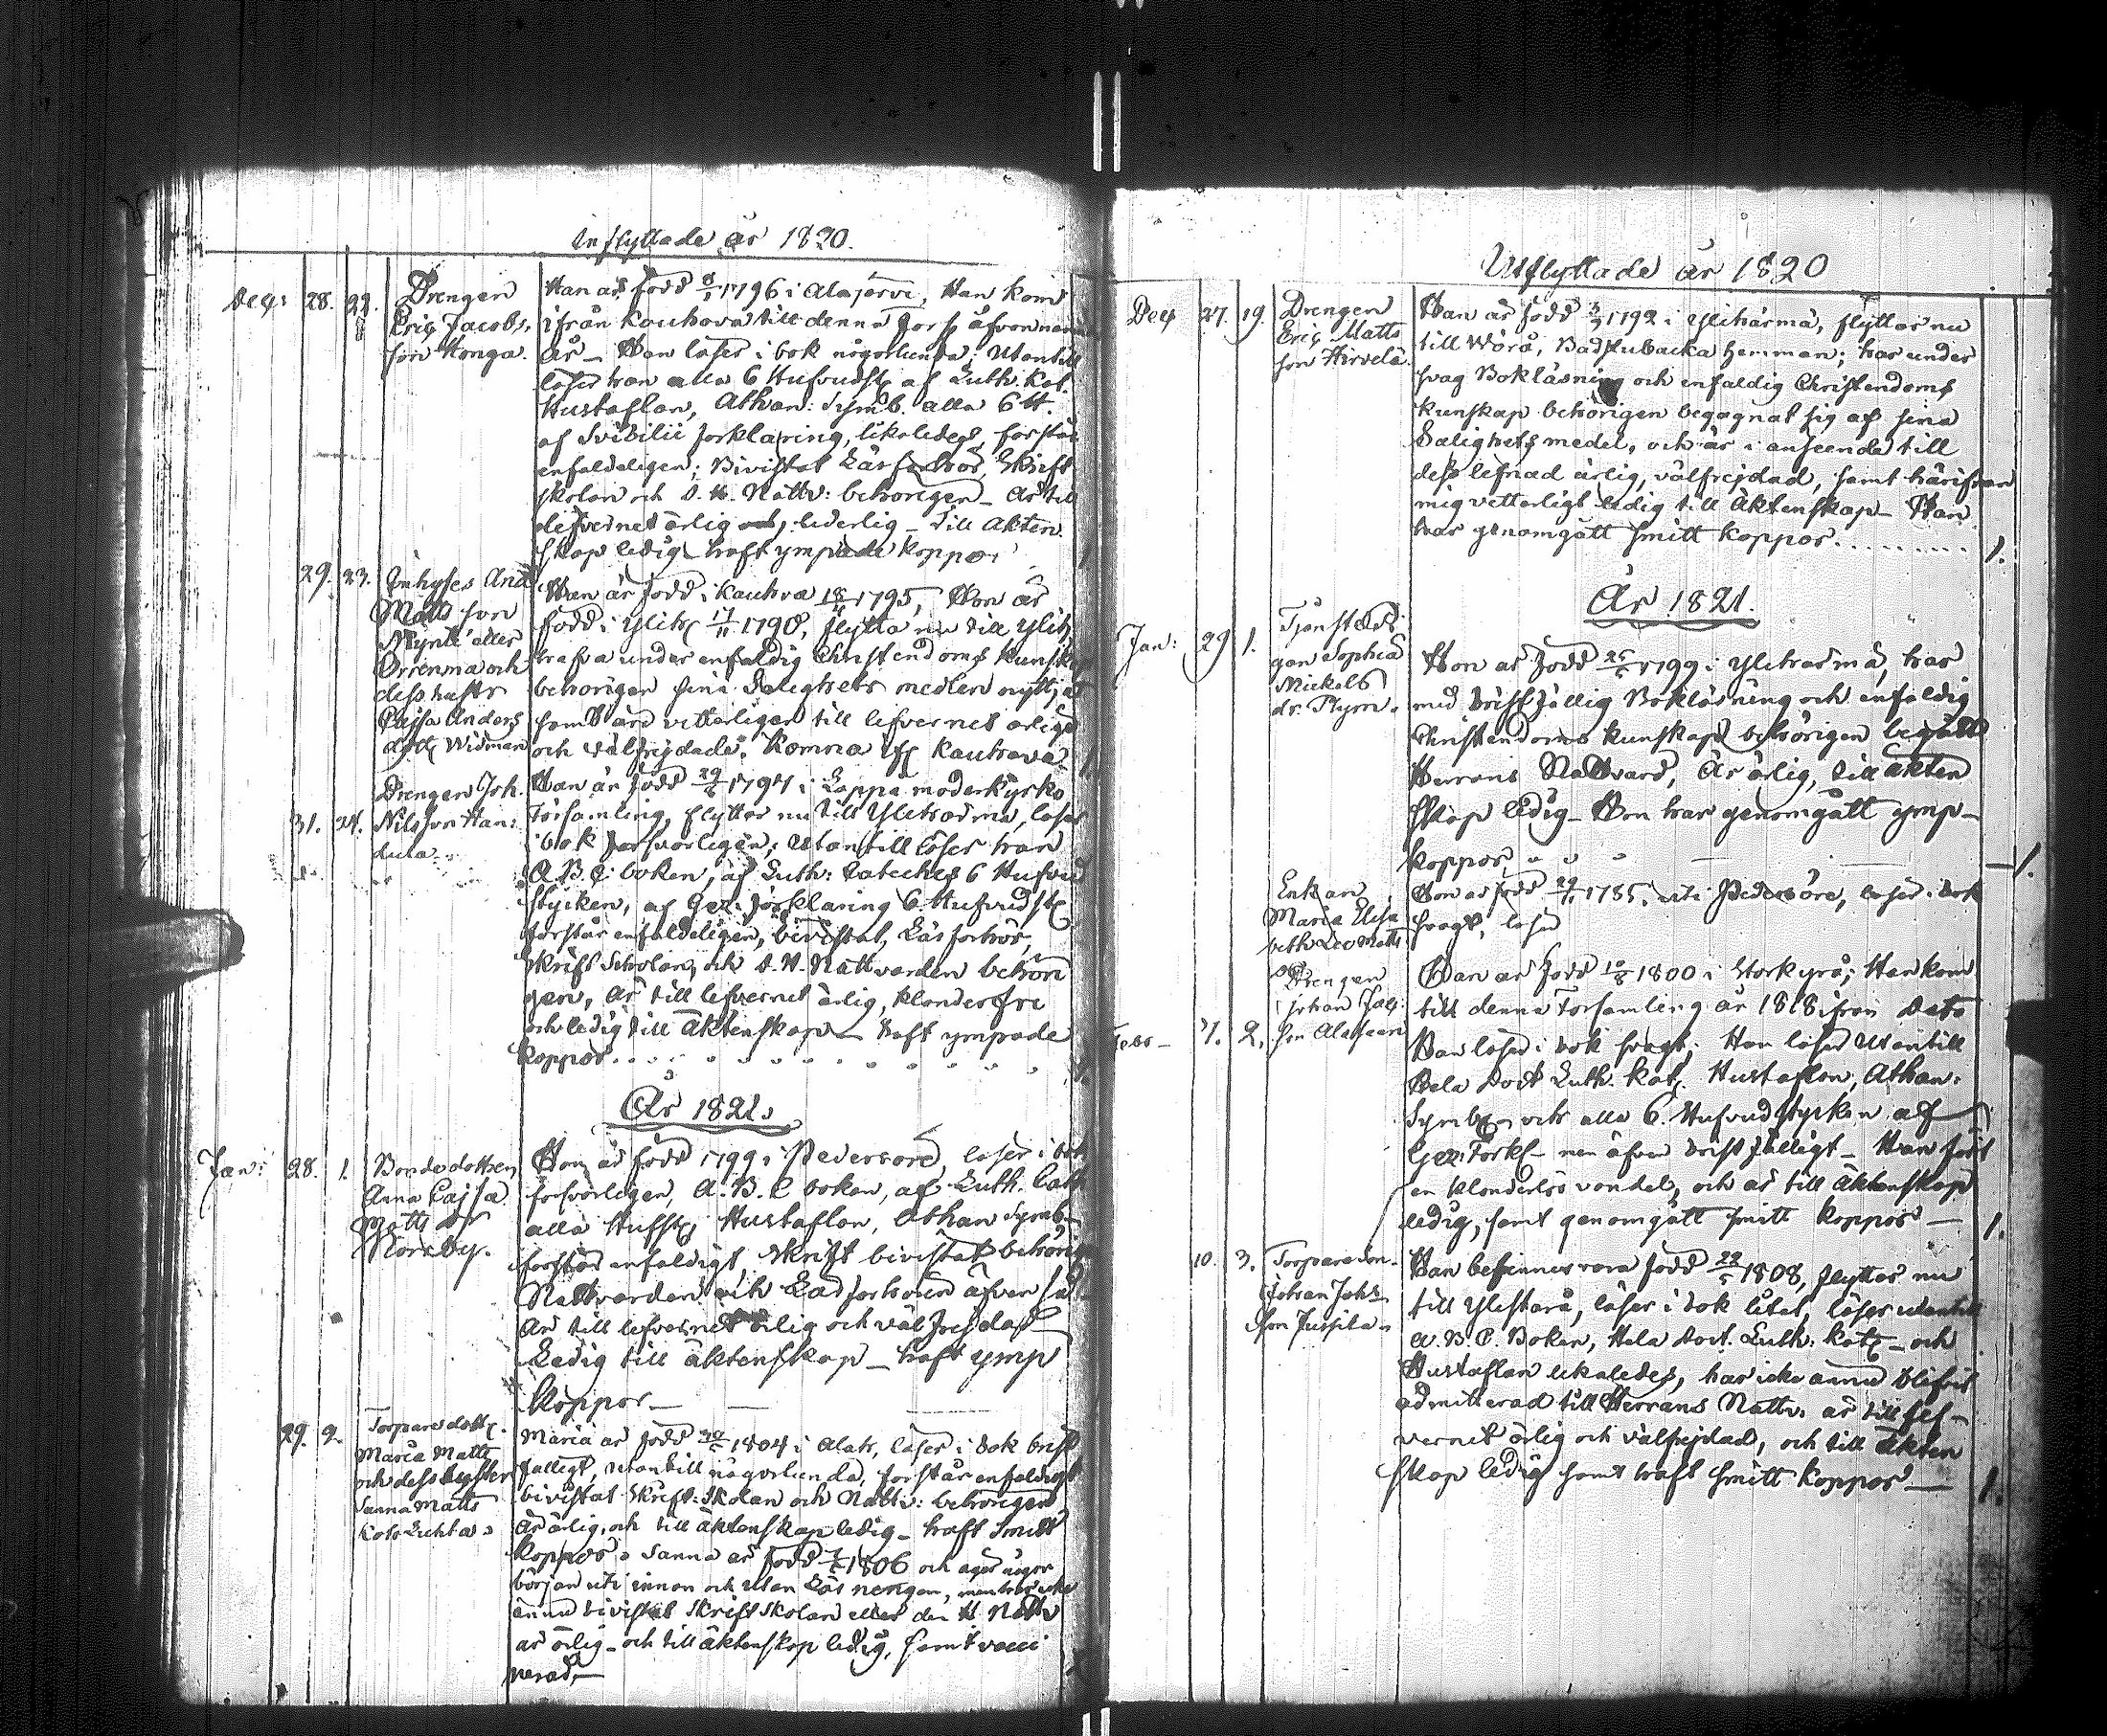 Inflyttade år 1820.
Dec: 28. 22. Drengen
Eric Jacobs,
son Honga.
Han är född 8/1 1796 i Alajärvi, Han kom
ifrån Kauhava till denna förs äfvannämn
år _ Han läser i bok någorlunda; Utantill
läser han alla 6 Hufvudst: af Luth. Kat.
Hustaflan, Athan: Symb. alla 6 H.
af Svibilii förklaring, likaledes, förstår
enfaldeligen; Bivistat Läsförhör, Skrift
skolan och d. H. Nattv: behörigen _ Är till
lefvernet ärlig och lederlig _ till Äkten
skap ledig haft ympade koppor
29. 23. Inhyses And
Matts son
Mynti eller
Orrenma och
dess hustr
Cajsa Anders
dott Widman
Han är född i Kauhva 18/ 1795, Hon är
född i Ylih 17/11 1790, flytta nu till Ylih
hafva under enfaldig Christendoms kunska
behörigen sina Salighets medlen nyttjat
samt äro vitterligen till lefvernet ärliga
och välfrejdade. Komna if Kauhava
31. 24. Drengen Joh.
Nilsson Han:
dula
Han är född 29/ 1794 i Lappo moderkyrko
församling, flyttar nu till Yliharma, läser
i bok försvarligen; Utantill läser han
A.B.C. boken, af Luth: Cateches 6 Hufvud
stycken, af Gez: förklaring 6 Hufvudst
förstår enfaldeligen, bivistat, Läsförhör,
Skrift Scholan, och d. H. Nattvarden behöri
gen, är till lefvernet ärlig, klanderfri
och ledig till äktenskap _ haft ympade
koppor.
År 1821.
Jan: 28. 1. Bondedottren
Anna Cajsa
Matts dr
Norrby.
Hon är född 1799 i Pedersöre, läser i bok
försvarligen, A.B.C boken, af Luth. Cath
alla Hufst Hustaflan, Athan Symb_
förstår enfaldigt, Skrift bivistat behörig
Nattvarden och Läsförhören äfven så
är till lefvernet ärlig och välfrejdad
Ledig till äktenskap _ haft ymp
koppor _
29. 2. Torpare dott
Maria Matts
och dess syster
Sanna Matts
Koto Luhta
Maria är född 1804 i Alah, läser i bok brist
fälligt, utantill någorlunda, förstår enfaldigt
bivistat Skrift: Skolan och Nattv: behörigen
är ärlig och till äktenskap ledig _ haft Smitt
koppor. Sanna är född 1806 och äger någon
början uti innan och utan Läsningen, men har icke
ännu bivistat Skrift Skolan eller den H Nattv
är ärlig _ och till äktenskap ledig, samt vacci
nerad, _
Utflyttade år 1820
Dec 27. 19. Drengen
Eric Matts
son Hirvelä
Han är född 3/9 1792 i Yliharmä, flyttar nu
till Wörå, Badstubacka hemman; har under
svag Bokläsning och enfaldig Christendoms
kunskap behörigen begagnat sig af sina
Salighets medel, och är i anseende till
dess lefnad ärlig, välfrejdad, samt härifrån
mig vetterligt ledig till Äktenskap _ Han
har genomgått smitt koppor. 1.
År 1821.
Jan: 29 1. Tjenstedi
gan Sophia
Mickels
dr. Rym.
Hon är född 25/ 1799 i Yliharmä, har
med bristfällig Bokläsning och enfaldig
Christendoms kunskap behörigen begått
Herrans Nattvard, Är ärlig, till äkten
skap ledig _ Hon har genomgått ymp _
koppor 1.
Enkan
Maria Elisa
beth Leo Matts
dr
Hon är född 29/ 1785, uti Pedersöre, läser i bok
svagt, läser
Febr _ 7. 2. Drengen
Johan Jac:
son Alatsean
Han är född 10/8 1800 i Storkyro; Han kom
till denna Församling år 1818 ifrån dato
Han läser i bok svagt. Han läser Utantill
Hela Doct Luth. Kat. Hustaflan, Athan:
Symb _ och alla 6. Hufvudstycken af
Gez: Förkl _ men äfven bristfälligt _ Han fört
en klanderlös vandel, och är till Äktenskap
ledig, samt genomgått smitt koppor _ 1.
10. 3. Torpareson
Johan Johs
son Jussila
Han befinnes vara född 22/5 1808, flyttar nu
till Ylistaro, läser i bok litet, läser utantill
A.B.C. Boken, Hela Doct. Luth: Kat _ och
Hustaflan likaledes, har icke ännu blifvit
admitterad till Herrans Nattv. är till lef _
vernet ärlig och välfrejdad, och till äkten
skap ledig samt haft smitt koppor _ 1.